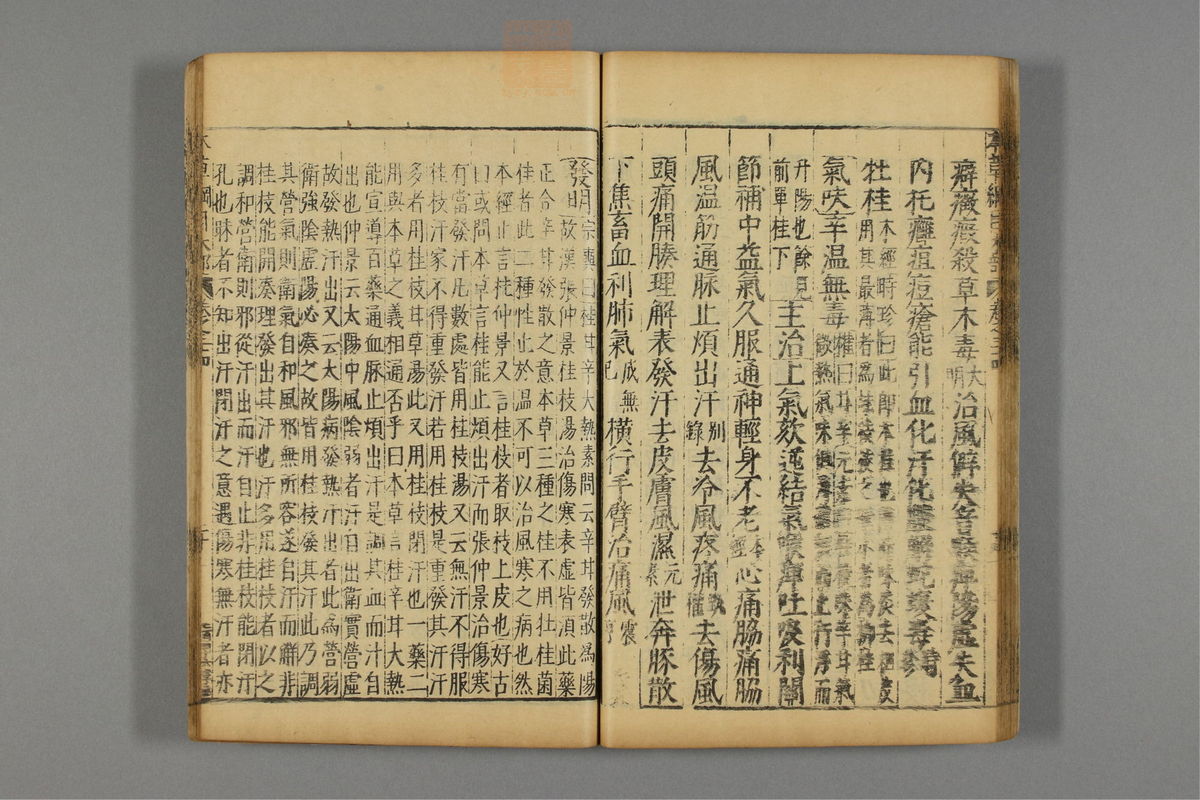 癖癥瘕殺草木毒大明治風僻失音喉痺陽虛失血
內托癰疽痘瘡能引血化汗化膿解蛇蝮毒時珍
牡桂本經時珍曰此即木桂也薄而味淡去粗皮
用其最薄者為桂枝枝之嫩小者為柳桂
氣味辛溫無毒權曰甘辛元素曰桂枝味辛甘氣
微熱氣味俱薄體輕而上行浮而
升陽也餘見
前單桂下主治上氣欬逆結氣喉痺吐吸利關
節補中益氣久服通神輕身不老本經心痛脇痛脇
風溫筋通脉止煩出汗別錄去冷風疼痛甄權去傷風
頭痛開腠理解表發汗去皮膚風濕元素泄奔豚散
下焦畜血利肺氣成無已橫行手臂治痛風震亨
發明宗奭曰桂甘辛大熱素問云辛甘發散為陽
故漢張仲景桂枝湯治傷寒表虛皆須此藥
正合辛甘發散之意本草三種之桂不用牡桂菌
桂者此二種性止於溫不可以治風寒之病也然
本經止言桂仲景又言桂枝者取枝上皮也好古
曰或問本草言桂能止煩出汗而張仲景治傷寒
有當發汗凡數處皆用桂枝湯又云無汗不得服
桂枝汗家不得重發汗若用桂枝是重發其汗汗
多者用桂枝甘草湯此又用桂枝閉汗也一藥二
用與本草之義相通否乎曰本草言桂辛甘大熱
能宣導百藥通血脉止煩出汗是調其血而汗自
出也仲景云太陽中風陰弱者汗自出衛實營虛
故發熱汗出又云太陽病發熱汗出者此為營弱
衛強陰虛陽必凑之故皆用桂枝發其汗此乃調
其營氣則衛氣自和風邪無所容遂自汗而解非
桂枝能開凑理發出其汗也汗多用桂枝者以之
調和營衛則邪從汗出而汗自止非桂枝能閉汗
孔也昧者不知出汗閉汗之意遇傷寒無汗者亦
本草綱目木部 卷之三四